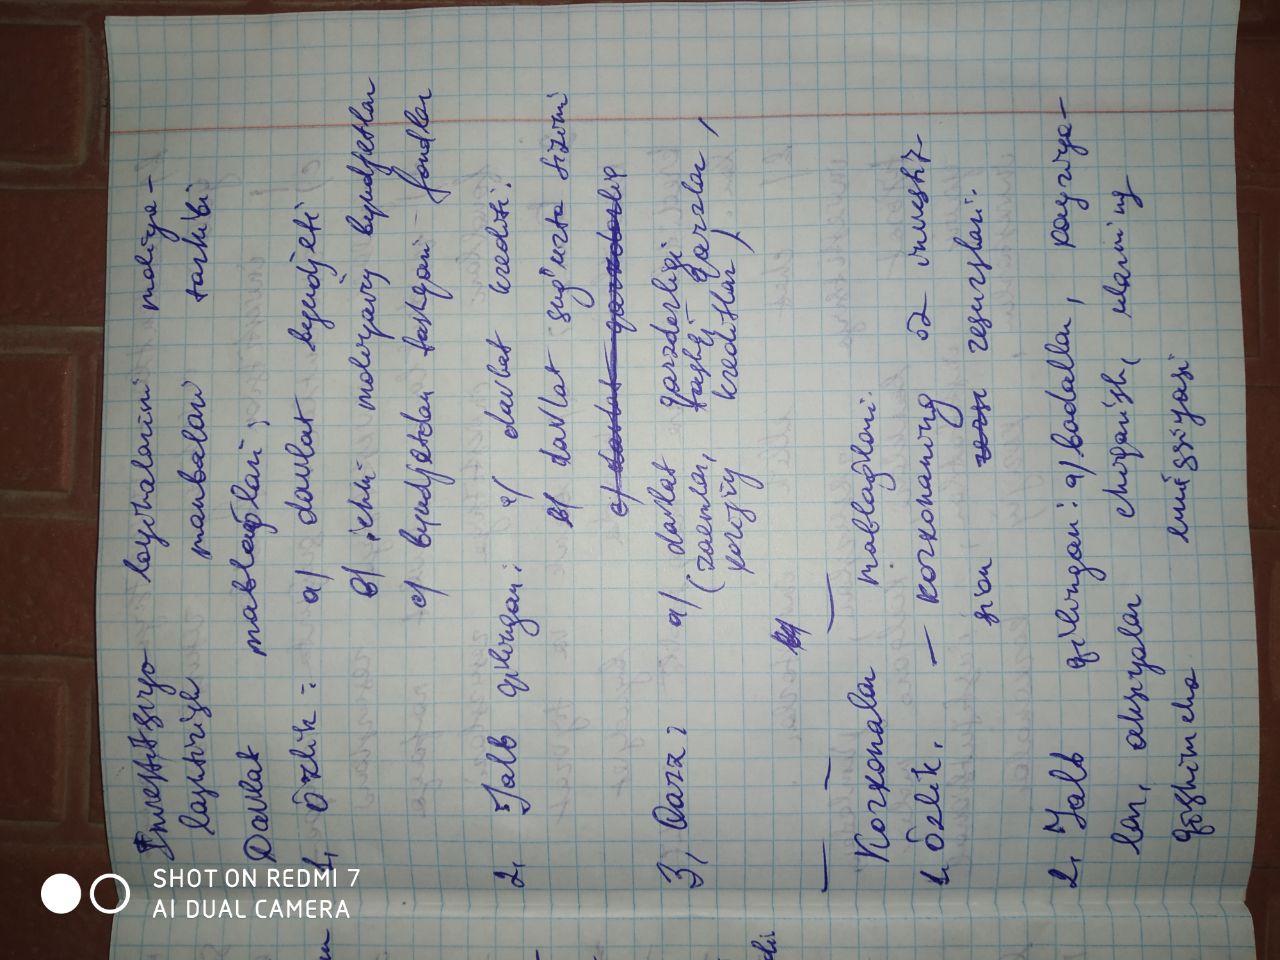 Investitsiyo loyihalarini moliya-
lashtirish manbalari tarkibi
Davlat mablag'lari;
1, O'zlik: a) davlat byudjeti
b) ichki moliyaviy byudjetlar
c) byudjetdan tashqari fondlar
2, Jalb qilingan: a) davlat krediti.
b) davlat sug'urta tizimi
3, Qarz: a) davlat qarzdorligi
(zaemlar, tashqi qarzlar,
xorijiy kreditlar)
Korxonalar mablag'lari.
1. O'zlik, – korxonaning o'z investit-
sion resurslari.
2, Jalb qilingan: a) badallar, payziya-
lar, aksiyalar chiqarish, ularning
qo'shimcha emissiyasi
SHOT ON REDMI 7
AI DUAL CAMERA